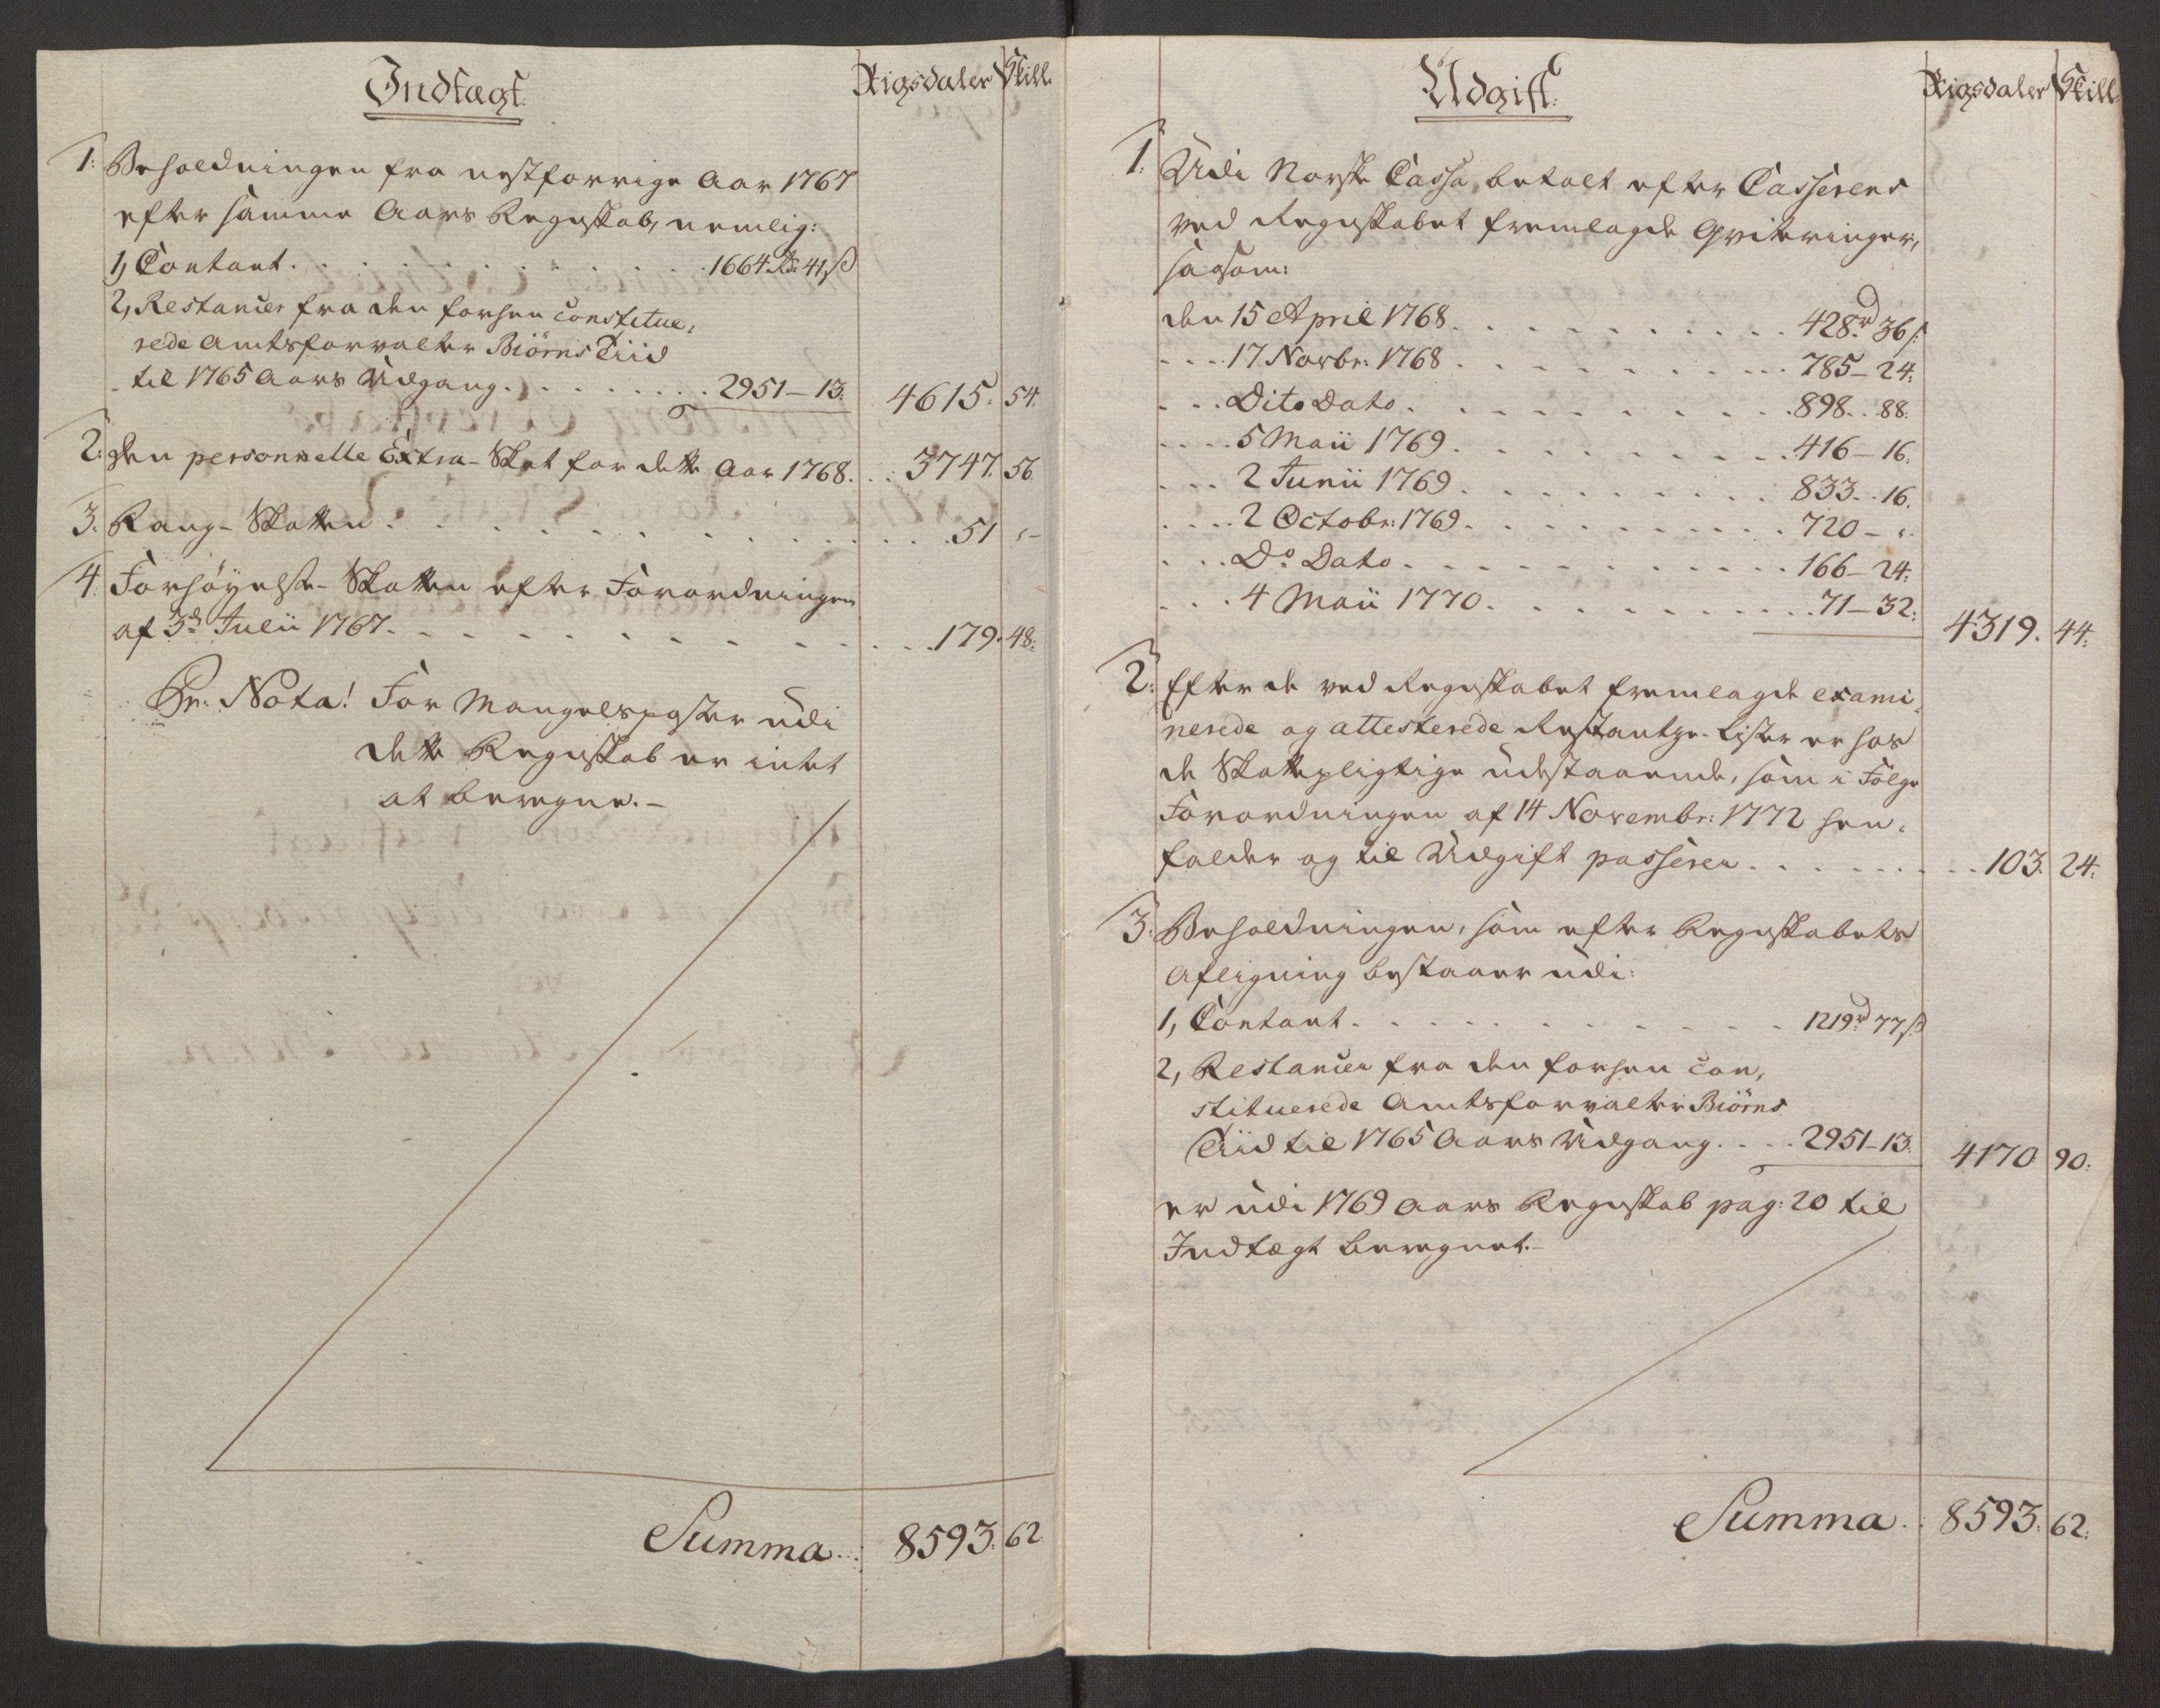 Indtægt.
Rigsdaler Skill.
1. Beholdningen fra nestforrige Aar 1767
efter samme Aars Regnskab, nemlig:
1, Contant . . . . . . . . . . 1664 Rd 41 ß
2, Restancer fra den forhen constitue-
rede Amtsforvalter Biörns Tiid
til 1765 Aars Udgang . . . . . . . 2951 – 13. 4615. 54.
2. den personnelle Extra-Skat for dette Aar 1768. . . 3747. 56
3. Rang-Skatten . . . . . . . . . . . 51 "–
4. Forhöyelse-Skatten efter Forordningen
af 3d Julii 1767. . . . . . . . . . . 179. 48.
Pr. Nota! For Mangelsposter udi
dette Regnskab er intet
at beregne.–
Summa . . . 8593. 62
Udgift.
Rigsdaler Skill
1. Udi Norske Cassa, betalt efter Casserens
ved Regnskabet fremlagde Qviteringer,
saasom:
den 15 April 1768 . . . . . . . . . . 428rd 36 ß
. . . . 17 Novbr: 1768 . . . . . . . . . 785 – 24.
. . . Dito Dato . . . . . . . . . . 898 . . 88.
. . . . 5 Maii 1769 . . . . . . . . . . 416 – 16.
. . . 2 Junii 1769 . . . . . . . . . . 833 . . 16.
. . . . 2 Octobr: 1769 . . . . . . . . . 720 – ".
. . . Do Dato . . . . . . . . . . . 166 – 24.
. . . 4 Maii 1770 . . . . . . . . . . 71 – 32. 4319. 44.
2. Efter de ved Regnskabet fremlagde exami-
nerede og attesterede Restantze-Lister er hos
de Skattepligtige udestaaende, som i Fölge
Forordningen af 14 Novembr: 1772 hen-
falder og til Udgift passerer . . . . . . . . 103. 24.
3. Beholdningen, som efter Regnskabets
Afligning bestaaer udi:
1, Contant . . . . . . . . . . . . 1219rd 77 ß
2, Restancer fra den forhen con-
stituerede Amtsforvalter Biörns
Tiid til 1765 Aars Udgang . . . . 2951 – 13. 4170 90.
er udi 1769 Aars Regnskab pag: 20 til
Indtægt beregnet.–
Summa . . 8593. 62.